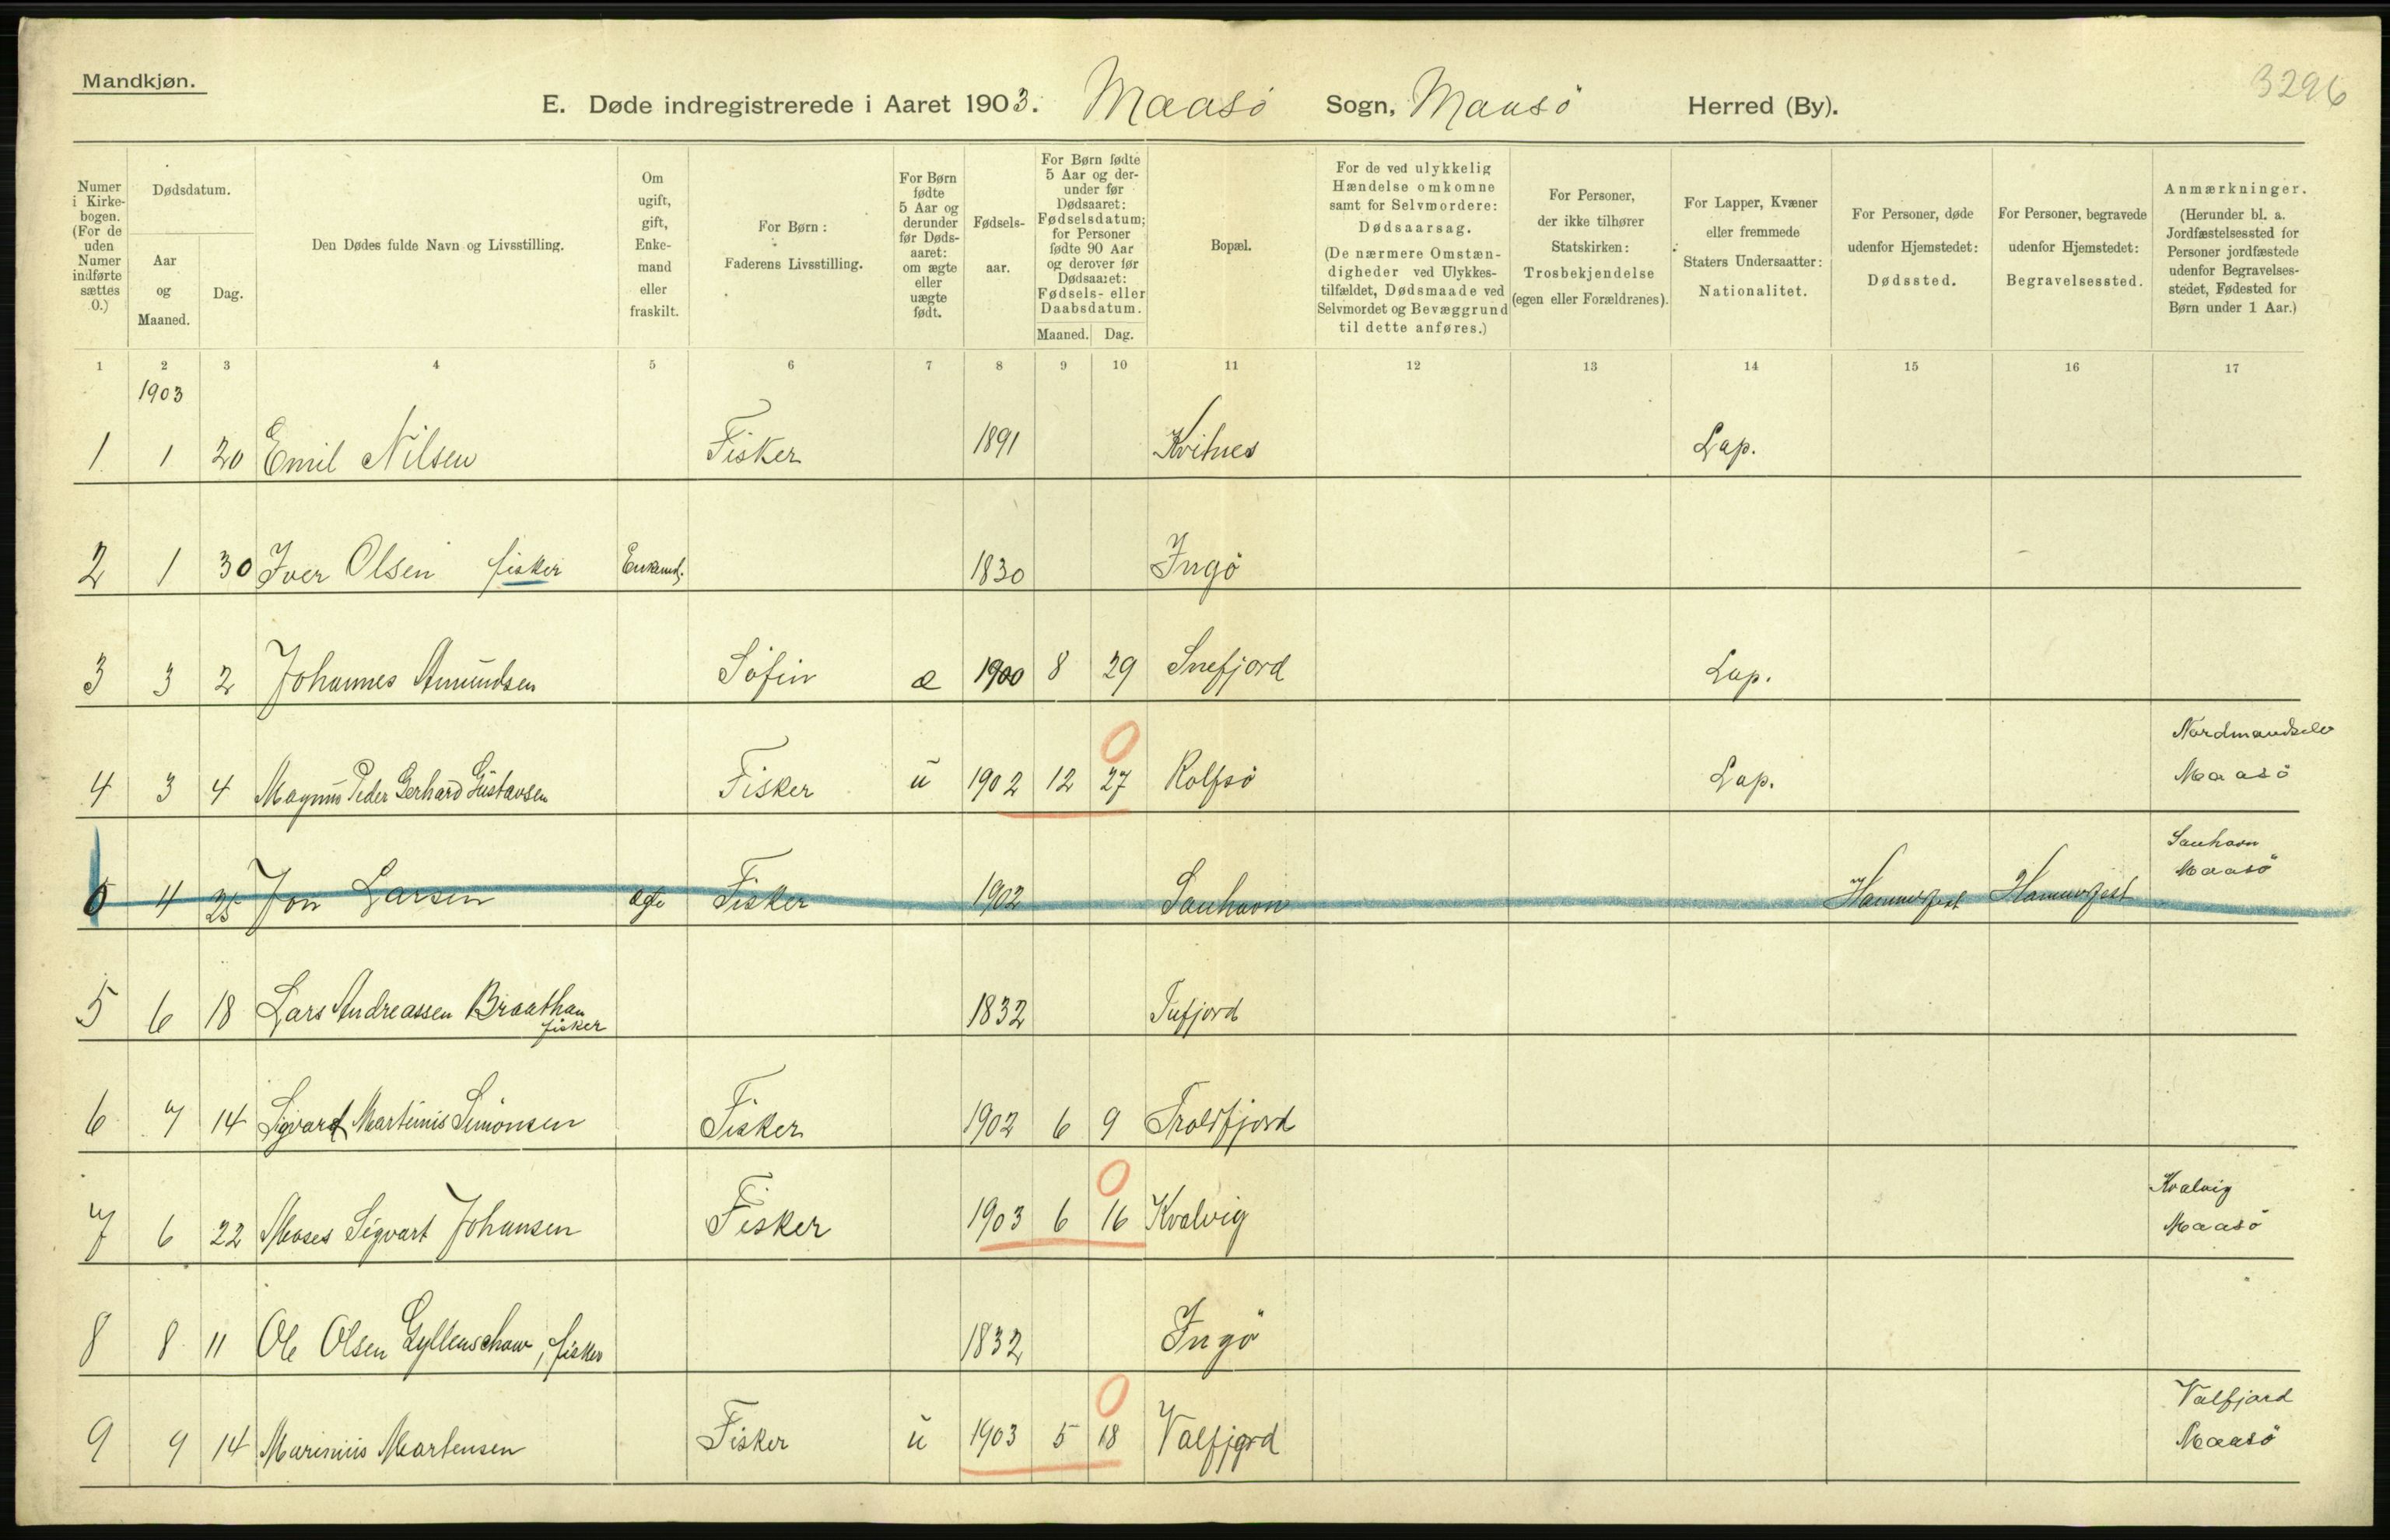 Mandkjøn.
3296
E. Døde indregistrerede i Aaret 1903. Maasö Sogn, Maasö Herred (By).
Numer i Kirke-bogen. (For de uden Numer indførte sættes 0.)
Dødsdatum.
Aar og Maaned.
Dag.
Den Dødes fulde Navn og Livsstilling.
Om ugift, gift, Enke-mand eller fraskilt.
For Børn: Faderens Livsstilling.
For Børn fødte 5 Aar og derunder før Døds-aaret: om ægte eller uægte født.
Fødsels-aar.
For Børn fødte 5 Aar og der-under før Dødsaaret: Fødselsdatum; for Personer fødte 90 Aar og derover før Dødsaaret: Fødsels- eller Daabsdatum.
Maaned. Dag.
Bopæl.
For de ved ulykkelig Hændelse omkomne samt for Selvmordere: Dødsaarsag. (De nærmere Omstæn-digheder ved Ulykkes-tilfældet, Dødsmaade ved Selvmordet og Bevæggrund til dette anføres.)
For Personer, der ikke tilhører Statskirken: Trosbekjendelse (egen eller Forældrenes).
For Lapper, Kvæner eller fremmede Staters Undersaatter: Nationalitet.
For Personer, døde udenfor Hjemstedet: Dødssted.
For Personer, begravede udenfor Hjemstedet: Begravelsessted.
Anmærkninger. (Herunder bl. a. Jordfæstelsessted for Personer jordfæstede udenfor Begravelses-stedet, Fødested for Børn under 1 Aar.)
1 2 3 4 5 6 7 8 9 10 11 12 13 14 15 16 17
1903
1 1 20 Emil Nilsen Fisker 1891 Kvitnes Lap.
2 1 30 Iver Olsen fisker Enkemd. 1830 Ingö
3 3 2 Johannes Amundsen Söfin æ 1900 8 29 Snefjord Lap.
0
4 3 4 Magnus Peder Gerhard Gustavsen Fisker u 1902 12 27 Rolfsö Lap. Nordmandselv
Maasö
0 4 25 Jon Larsen ægte Fisker 1902 Sauhavn Hammerfest Hammerfest Sauhavn
Maasö
5 6 18 Lars Andreassen Braathan 1832 Tufjord
fisker
6 7 14 Sigvard Martinus Simonsen Fisker 1902 6 9 Troldfjord
0
7 6 22 Moses Sigvart Johansen Fisker 1903 6 16 Kvalvig Kvalvig
Maasö
8 8 11 Ole Olsen Gyllenschaw, fisker 1832 Ingö
0
9 9 14 Marinius Martensen Fisker u 1903 5 18 Valfjord Valfjord
Maasö